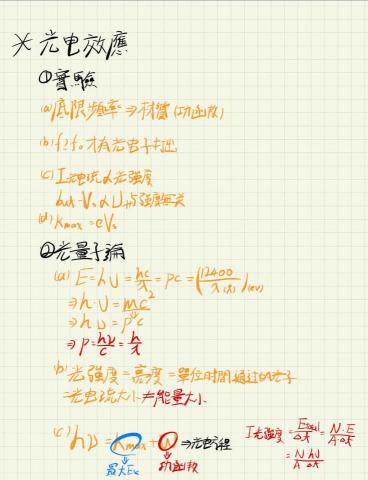 * 光电效應
①實驗
(a)底限頻率⇒材質(功函數)
(b) f≥f₀才有光电子共出
(c) I光电流∝光强度
but -Vₛ∝υ,与强度無关
(d) Kmax = eVₛ
②光量子論
(a) E=hυ=hc/λ=pc=(12400/λ(Å))(eV)
⇒h·υ=mc²
⇒hυ=p·c
⇒p=hυ/c=h/λ
(b)光强度=亮度=單位时間通过的光子
=光电流大小≠能量大小
(c) hυ=Kmax+W⇒光电方程
最大Eₖ 功函数
I光强度=Etotal/AΔt=N·E/A·Δt
=N hυ/AΔt